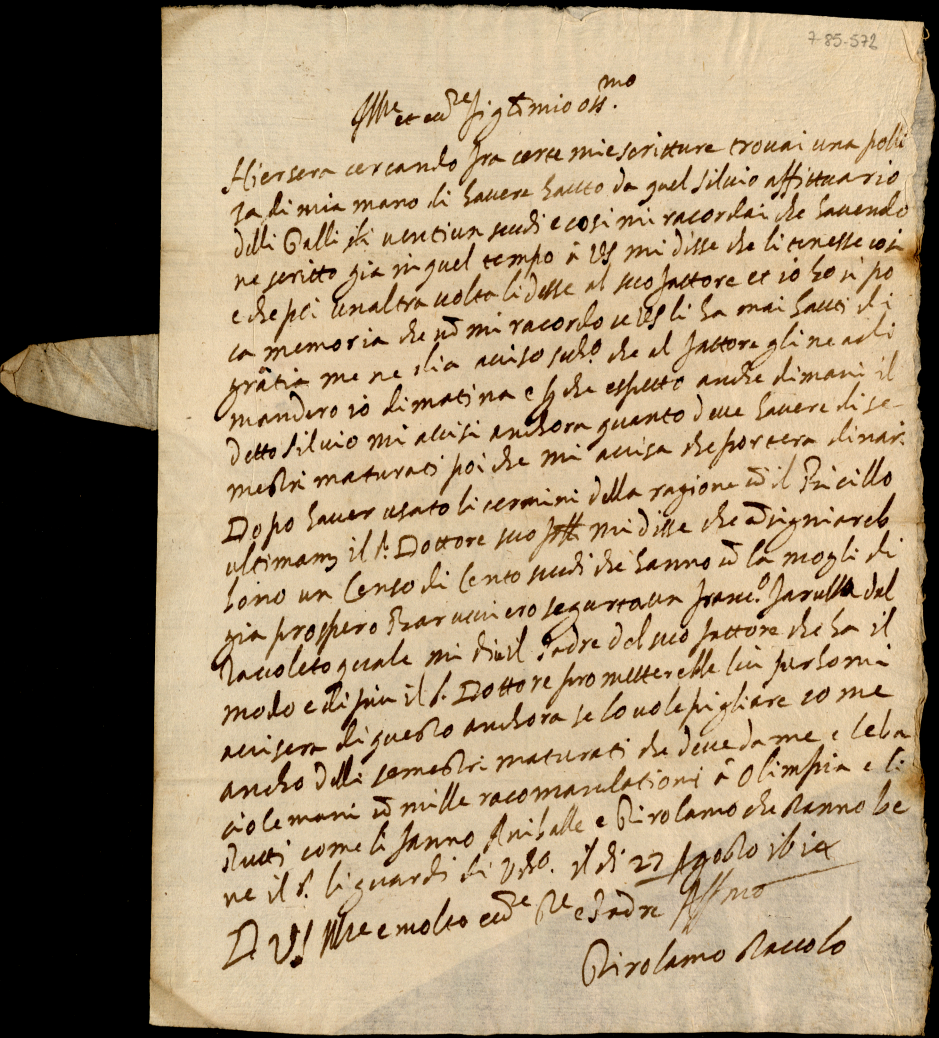 7-85-572
Ill.re et ecc.te sig.r mio oss.mo
Hiersera cercando fra certe mie scritture trovai una poli
za di mia mano di havere hauto da quel silvio affittuario
delli Galli venti un scudi e cosi mi racordai che havendo
ne scritto gia in quel tempo à VS mi disse che li tenesse cosi
e che poi unaltra volta li desse al suo fattore et io ho si po
ca memoria che nō mi racordo se VS li ha mai hauti di
grātia me ne dia aviso subo. che al fattore gli ne
mandero io dimatina e che espetto anche dimani il
detto silvio mi avisi anchora quanto deve havere di se
mestri maturati poi che mi avisa che portera dinari
Dopo haver usato li termini della ragione cō il
ultimam il s.r Dottore suo mi disse che
bono un Censo di Cento scudi che hanno cō la mogli di
gia prospero segurta un franc.o del
quale mi il Padre del suo fattore che ha il
modo e di piu il s.r Dottore prometterebbe lui per homi
avisera di questo anchora se lo vole pigliare come
ancho delli semestri maturati che deve dame e le ba
cio le mani cō mille racomandationi à Olimpia e li
putti come li fanno Aniballe e Girolamo che stanno be
ne il s.r li guardi di il di 27 Agosto
D VS Ill.re e molto ecc.te e Padre Aff.mo
Girolamo